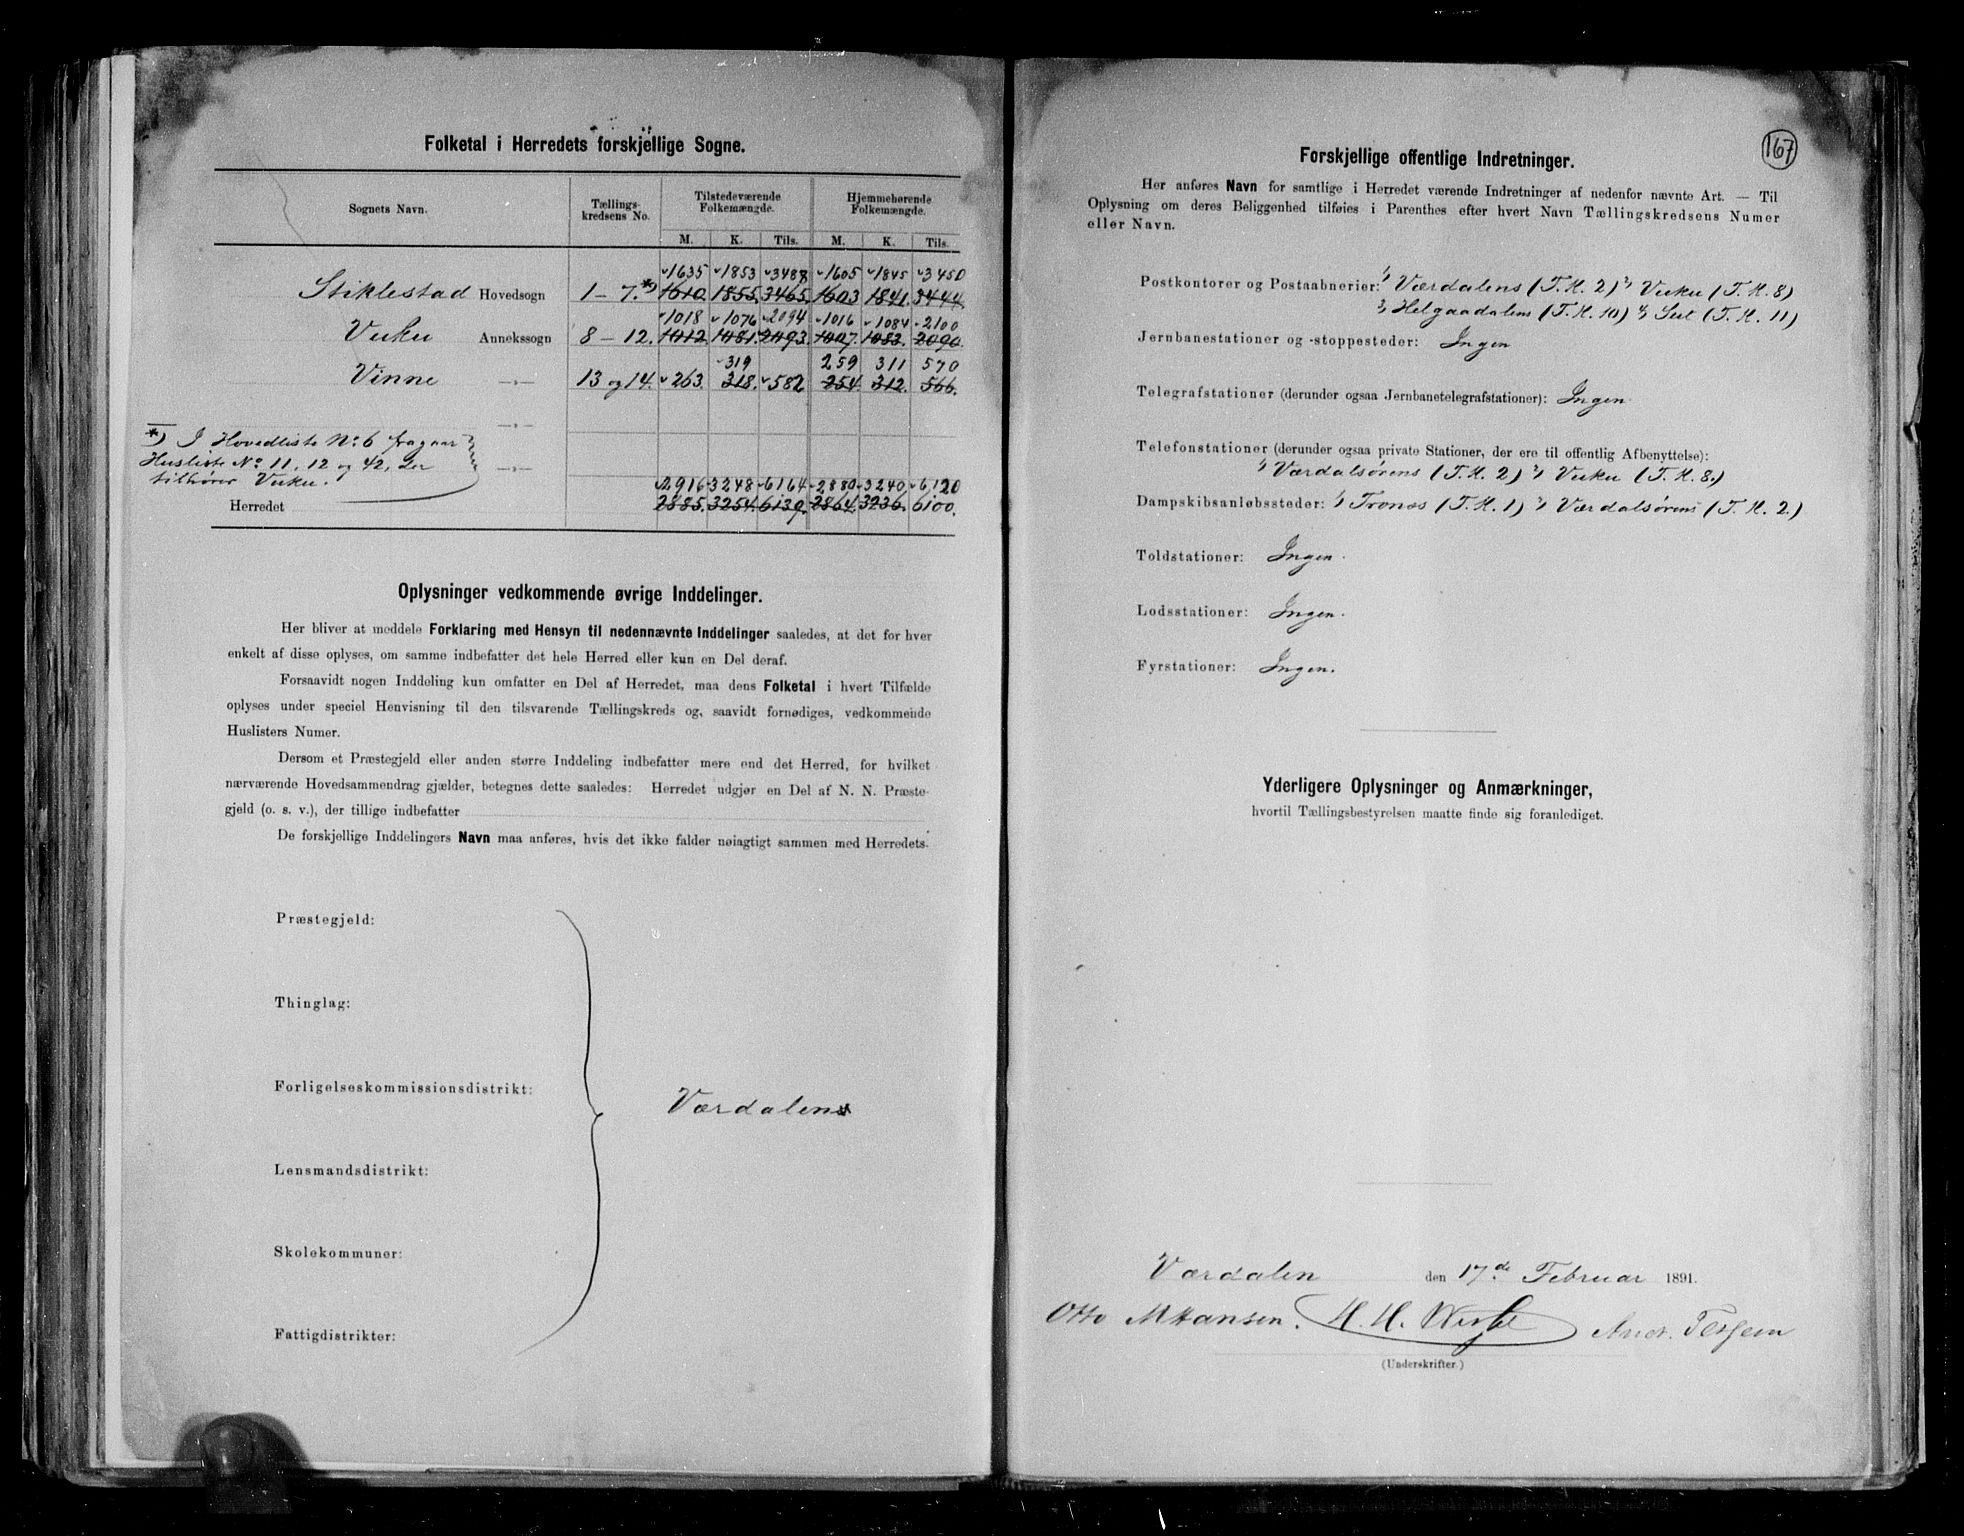 Folketal i Herredets forskjellige Sogne.
Sognets Navn. Tællings- kredsens No. Tilstedeværende Folkemængde. Hjemmehørende Folkemængde.
M. K. Tils. M. K. Tils.
1635 1853 3488 1605 1845 3450
Stiklestad Hovedsogn 1-7.*) 1610. 1855. 3465. 1603 1841. 3444.
1018 1076 2094 1016 1084 2100
Vuku Annekssogn 8-12. 1012. 1081. 2093. 1007. 1083. 2090.
319 259 311 570
Vinne -„- 13 og 14. 263. 318. 582 254. 312. 566.
-„-
*) I Hovedliste No. 6 fragaar
Husliste No 11, 12 og 42, der -„-
tilhører Vuku.
2916 3248 6164 2880 3240 6120
Herredet 2885. 3254. 6139. 2864. 3236. 6100.
Oplysninger vedkommende øvrige Inddelinger.
Her bliver at meddele Forklaring med Hensyn til nedennævnte Inddelinger saaledes, at det for hver
enkelt af disse oplyses, om samme indbefatter det hele Herred eller kun en Del deraf.
Forsaavidt nogen Inddeling kun omfatter en Del af Herredet, maa dens Folketal i hvert Tilfælde
oplyses under speciel Henvisning til den tilsvarende Tællingskreds og, saavidt fornødiges, vedkommende
Huslisters Numer.
Dersom et Præstegjeld eller anden større Inddeling indbefatter mere end det Herred, for hvilket
nærværende Hovedsammendrag gjælder, betegnes dette saaledes: Herredet udgjør en Del af N. N. Præste-
gjeld (o. s. v.), der tillige indbefatter
De forskjellige Inddelingers Navn maa anføres, hvis det ikke falder nøiagtigt sammen med Herredets.
Præstegjeld:
Thinglag:
Forligelseskommissionsdistrikt:
Værdalens
Lensmandsdistrikt:
Skolekommuner:
Fattigdistrikter:
167
Forskjellige offentlige Indretninger.
Her anføres Navn for samtlige i Herredet værende Indretninger af nedenfor nævnte Art. — Til
Oplysning om deres Beliggenhed tilføies i Parenthes efter hvert Navn Tællingskredsens Numer
eller Navn.
Postkontorer og Postaabnerier: 1) Værdalens (T. K. 2) 2) Vuku (T. K. 8)
3) Helgaadalens (T. K. 10) 4) Sul (T. K. 11)
Jernbanestationer og -stoppesteder: Ingen
Telegrafstationer (derunder ogsaa Jernbanetelegrafstationer): Ingen.
Telefonstationer (derunder ogsaa private Stationer, der ere til offentlig Afbenyttelse):
1) Værdalsørens (T. K. 2) 2) Vuku (T. K. 8.)
Dampskibsanløbssteder: 1) Tronæs (T. K. 1) 2) Værdalsørens (T. K. 2.)
Toldstationer: Ingen.
Lodsstationer: Ingen.
Fyrstationer: Ingen.
Yderligere Oplysninger og Anmærkninger,
hvortil Tællingsbestyrelsen maatte finde sig foranlediget.
Værdalen den 17de Februar 1891.
Otto M Hansen. H. H. Andr. Tessem
(Underskrifter.)